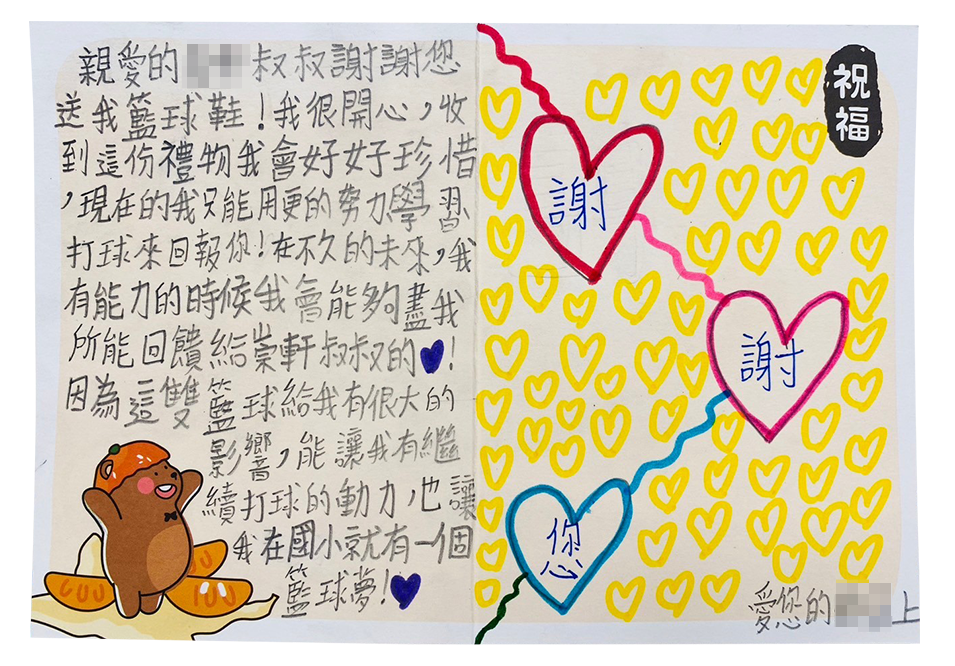 親愛的 叔叔謝謝您
送我籃球鞋!我很開心,收
到這份禮物我會好好珍惜
,現在的我只能用更的努力學習
打球來回報你!在不久的未來,我
有能力的時候我會能夠盡我
所能回饋給崇軒叔叔的!
因為這雙籃球給我有很大的
影響,能讓我有繼
續打球的動力,也讓
我在國小就有一個
籃球夢!
祝福
謝
謝
您
愛您的 上